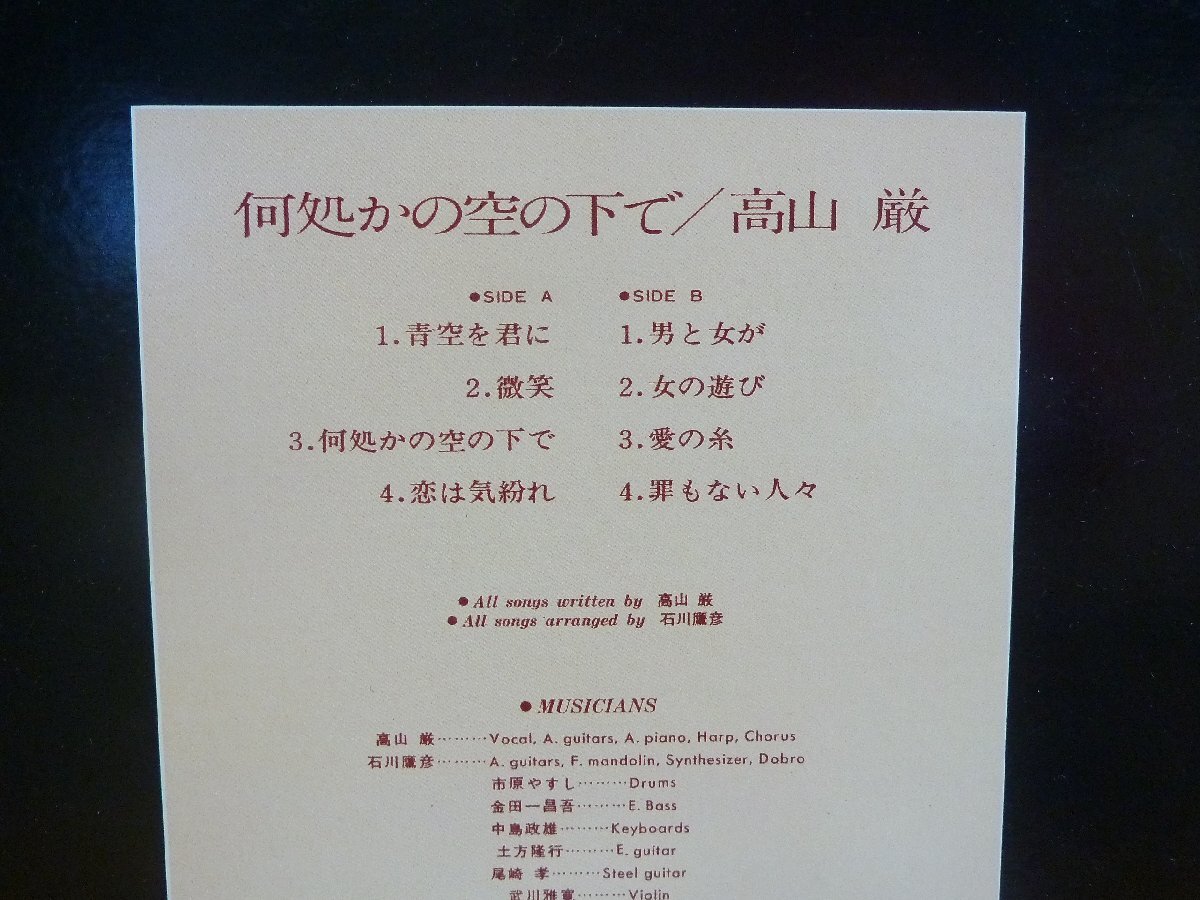 何処かの空の下で/高山 厳
●SIDE A
1.青空を君に
2.微笑
3.何処かの空の下で
4.恋は気紛れ
●SIDE B
1.男と女が
2.女の遊び
3.愛の糸
4.罪もない人々
●All songs written by 高山 厳
●All songs arranged by 石川鷹彦
●MUSICIANS
高山 厳………Vocal, A. guitars, A. piano, Harp, Chorus
石川鷹彦………A. guitars, F. mandolin, Synthesizer, Dobro
市原やすし………Drums
金田一昌吾………E. Bass
中島政雄………Keyboards
土方隆行………E. guitar
尾崎 孝………Steel guitar
武川雅寛………Violin